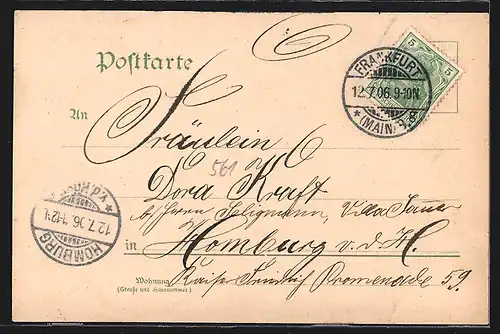 Postkarte
5 5
FRANKFURT
12.7.06. 9-10N.
* (MAIN)
An
Fräulein
561
Dora Kraft
b/ Herrn Seligmann, Villa
* v.d.HÖHE
12.7.06.
HOMBURG
in Homburg v. d. H.
Wohnung
(Straße und Hausnummer)
Kaiser Friedrich Promenade 59.